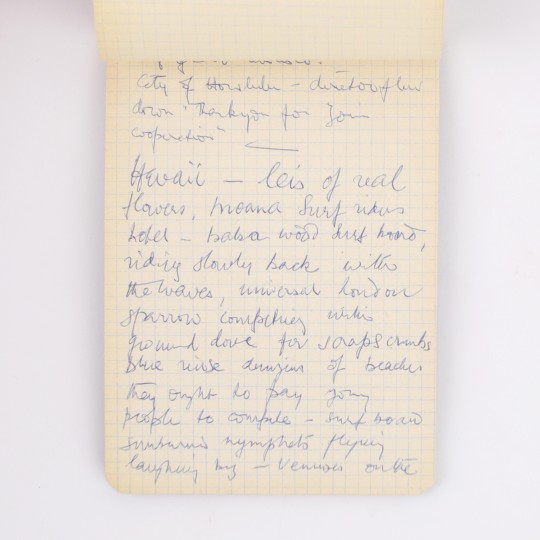 City of Honolulu –
down "Thankyou for your
cooperation"
Hawaii – leis of real
flowers, Moana Surf
hotel – balsa wood surf board,
riding slowly back with
the waves, universal London
sparrow competing with
ground dove for scraps crumbs
blue rinse of beaches
they ought to pay young
people to compete – surf board
nymphets flying
laughing by – Venuses on the